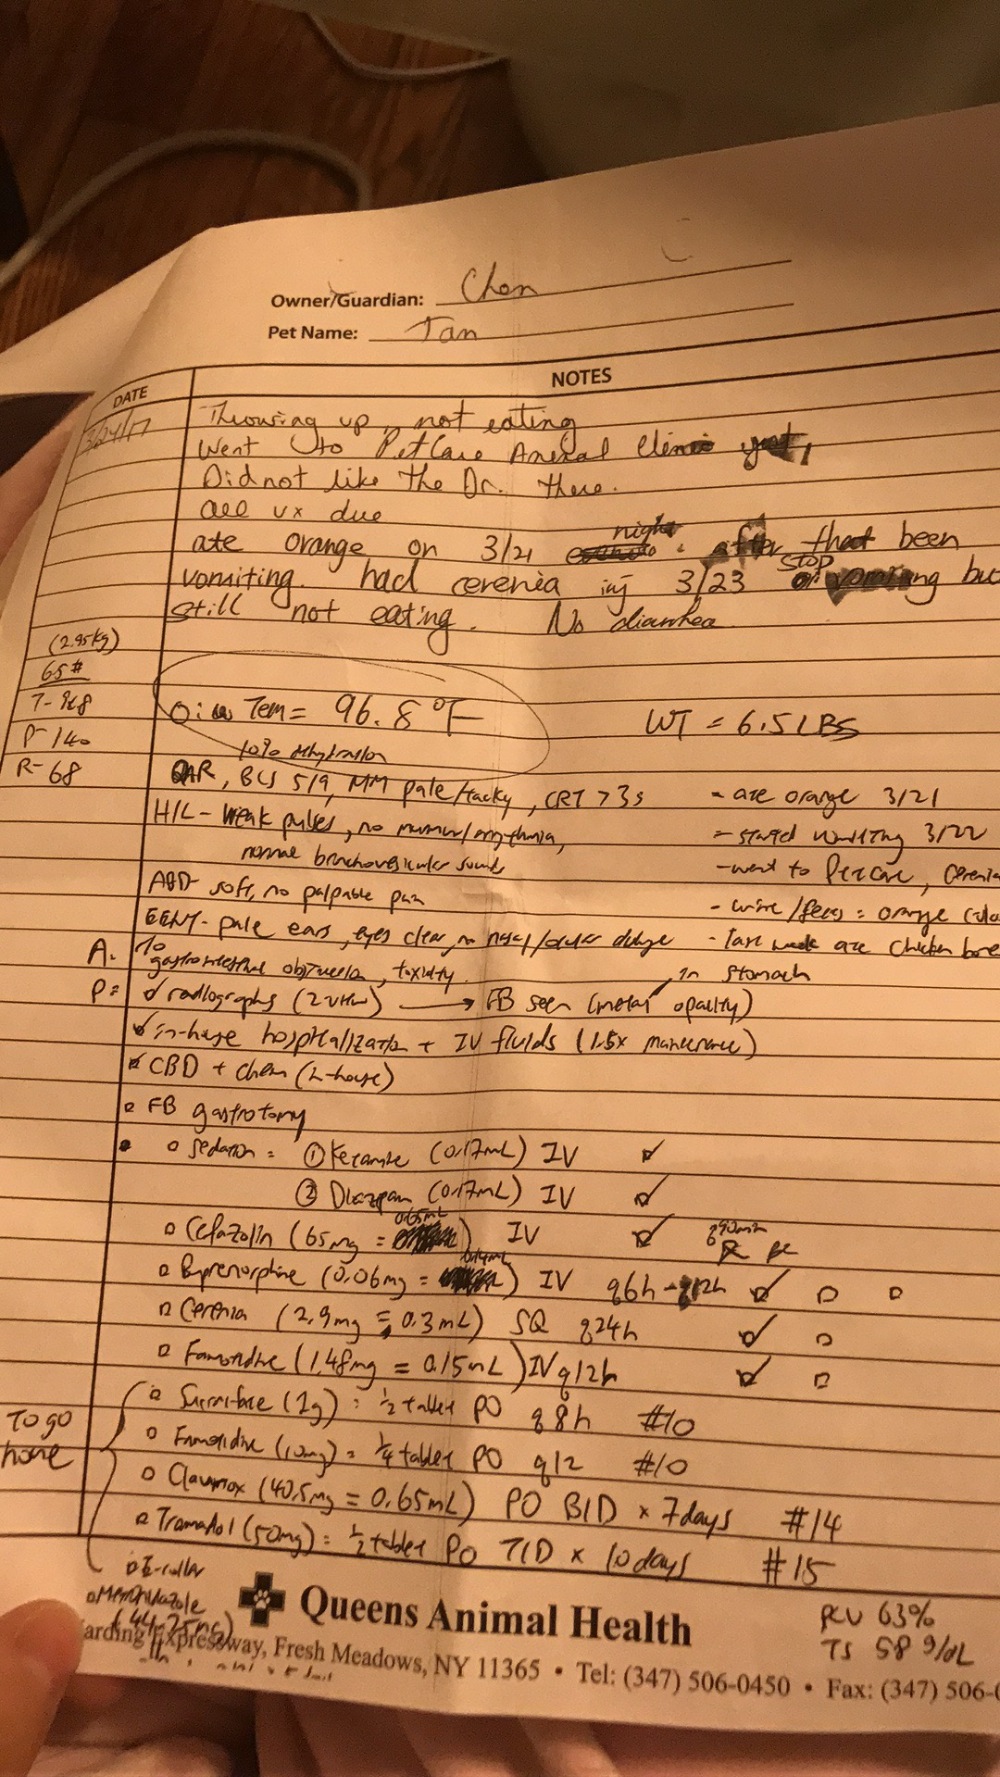 Owner/Guardian: Chen
Pet Name: Tan
DATE NOTES
3/24/17 Throwing up, not eating
Went to PetCare Animal Clinic
Did not like the Dr. there.
all vx due
ate orange on 3/21 night. after that been
vomiting. had cerenia inj 3/23 stop vomiting but
still not eating. No diarrhea
(2.95kg)
6.5#
T- 96.8
P- 140
R- 68
O: Tem = 96.8°F WT = 6.5 LBS
10% dehydration
QAR, BCS 5/9, MM pale/tacky, CRT >3s
H/L- weak pulses, no murmur/arrythmia,
normal bronchovesicular sounds
ABD- soft, no palpable pain
EENT- pale ears, eyes clear, no nasal/ocular discharge
- ate orange 3/21
- started vomiting 3/22
- went to Petcare, cerenia
- urine/feces = orange colo
- last week ate chicken bone
A: r/o gastrointestinal obstruction, toxicity
P: radiographs (2 view) → FB seen (metal opacity) in stomach
in-house hospitalization + IV fluids (1.5x maintenance)
CBD + chem (in-house)
FB gastrotomy
sedation = ① Ketamine (0.17mL) IV
② Diazepam (0.17mL) IV
Cefazolin (65mg = 0.65mL) IV
Buprenorphine (0.06mg = ) IV q6h - q12h
Cerenia (2.9mg = 0.3mL) SQ q24h
Famotidine (1.48mg = 0.15mL) IV q12h
To go home
Sucralfate (1g) = 1/2 tablet PO q8h #10
Famotidine (10mg) = 1/4 tablet PO q12 #10
Clavamox (40.5mg = 0.65mL) PO BID x 7days #14
Tramadol (50mg) = 1/2 tablet PO TID x 10days #15
E-collar
Queens Animal Health
PCV 63%
TS 58 g/dL
arding Expressway, Fresh Meadows, NY 11365 • Tel: (347) 506-0450 • Fax: (347) 506-